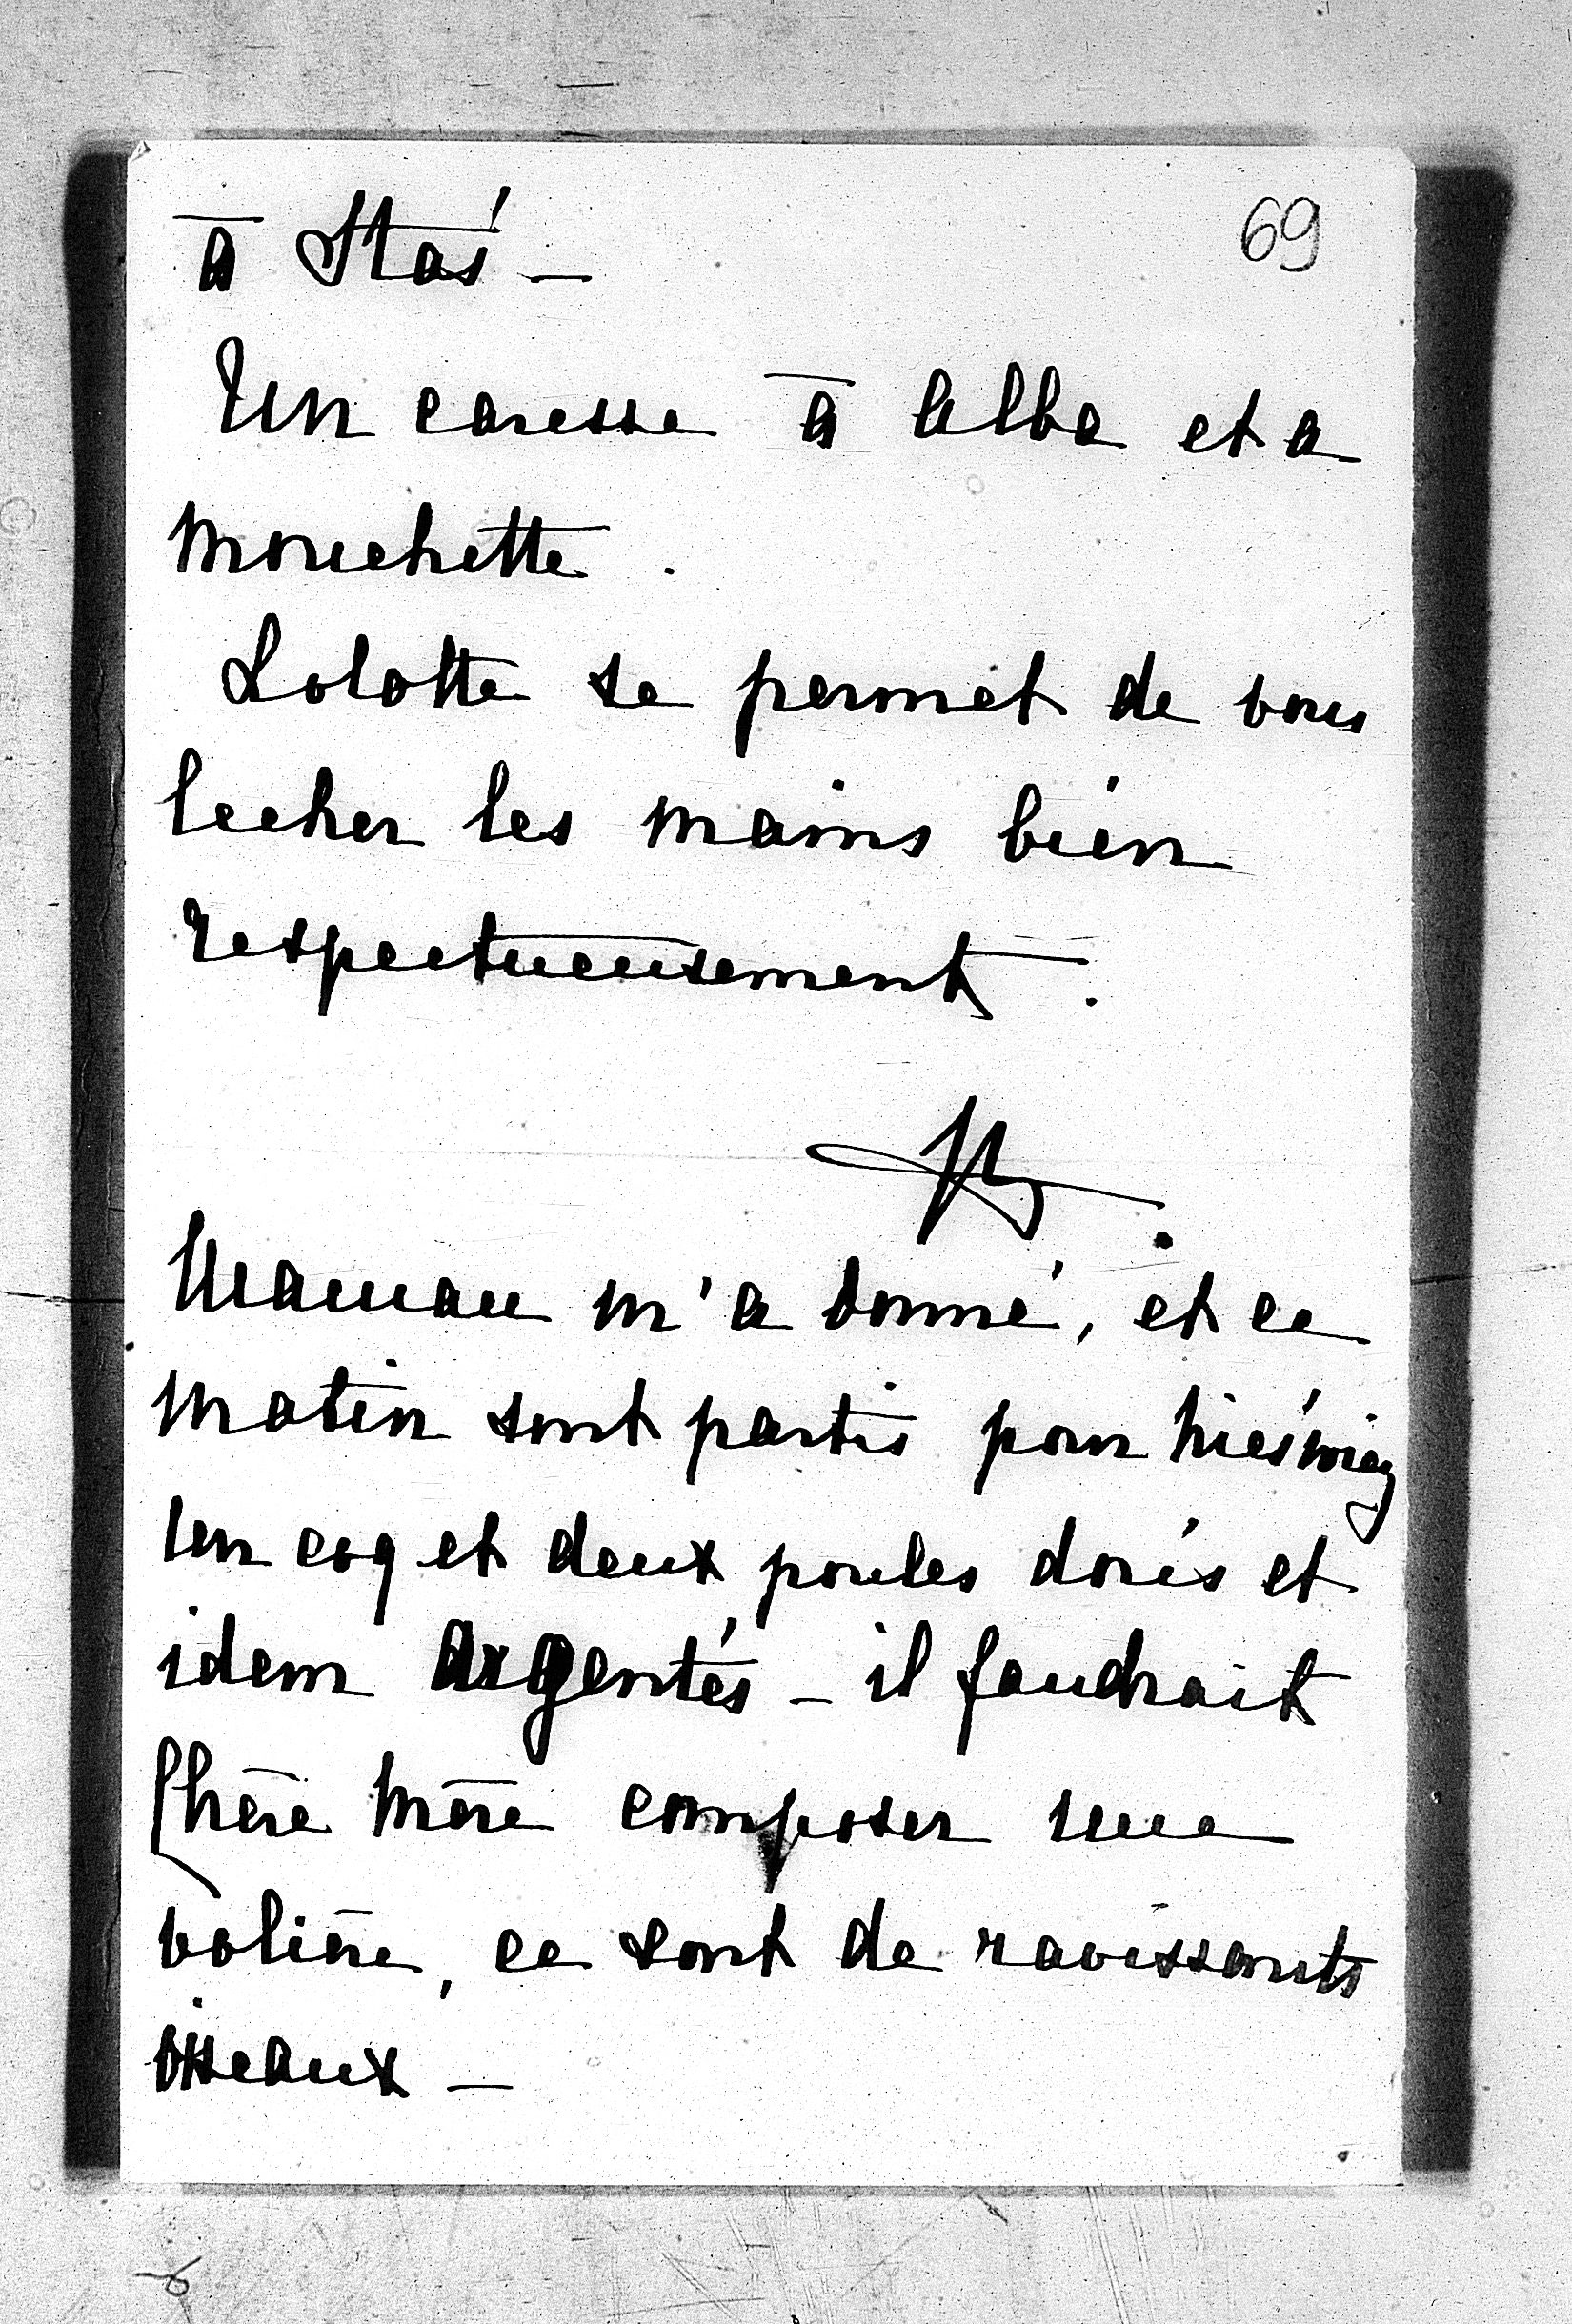 69
à Staś —
Un caresse à Alba et a
Mouchette .
Lolotte se permet de vous
lecher les mains bien
respectueusement .
Maman m'a donné, et ce
matin sont partis pour Nieśwież
un coq et deux poules dorés et
idem argentés — il faudrait
Chère Mère composer une
volière, ce sont de ravissants
oiseaux —